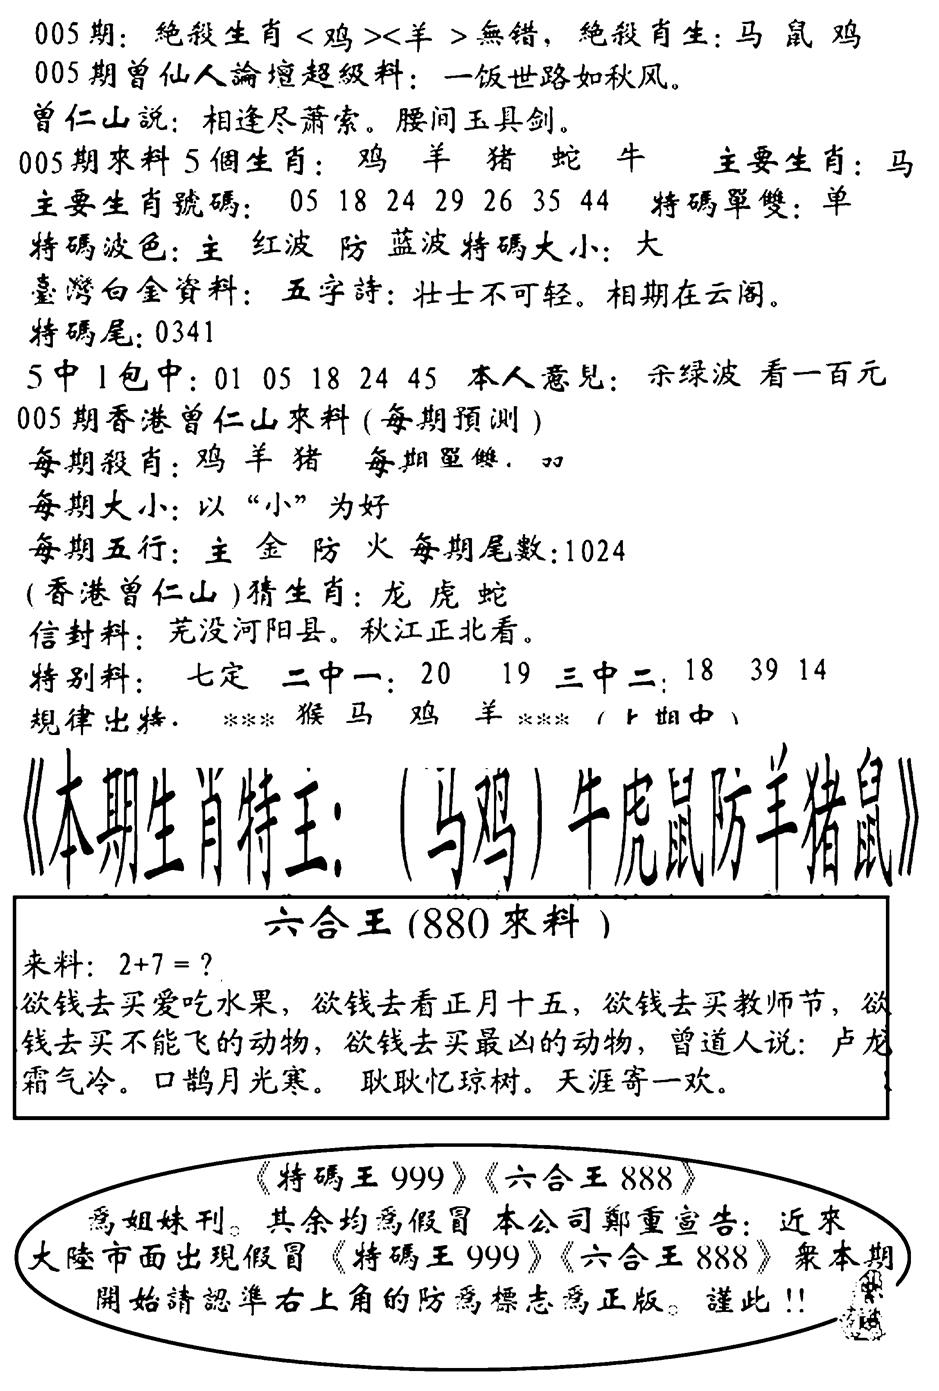 005期：絶殺生肖<鸡><羊 >無错，絶殺肖生：马 鼠 鸡
005期曾仙人論壇超級料：一饭世路如秋风。
曾仁山説：相逢尽萧索。腰间玉具剑。
005期來料5個生肖： 鸡 羊 猪 蛇 牛 主要生肖：马
主要生肖號碼： 05 18 24 29 26 35 44 特碼單雙：单
特碼波色：主 红波 防 蓝波 特碼大小：大
臺灣白金資料： 五字詩：壮士不可轻。相期在云阁。
特碼尾：0341
5中1包中：01 05 18 24 45 本人意見： 买绿波 看一百元
005期香港曾仁山來料(每期預測)
每期殺肖：鸡 羊 猪 每期單雙：
每期大小：以“小”为好
每期五行：主 金 防 火 每期尾數：1024
(香港曾仁山)猜生肖：龙 虎 蛇
信封料：芜没河阳县。秋江正北看。
特别料： 七定 二中一：20 19 三中二：18 39 14
規律出特： *** 猴 马 鸡 羊 *** (上期中)
《本期生肖特王：(马鸡)牛虎鼠防羊猪鼠》
六合王(880來料)
来料：2+7=？
欲钱去买爱吃水果，欲钱去看正月十五，欲钱去买教师节，欲
钱去买不能飞的动物，欲钱去买最凶的动物，曾道人说：卢龙
霜气冷。口鹊月光寒。 耿耿忆琼树。天涯寄一欢。
《特碼王999》《六合王888》
爲姐妹刊。其余均爲假冒 本公司鄭重宣告：近來
大陸市面出現假冒《特碼王999》《六合王888》衆本期
開始請認準右上角的防爲標志爲正版。謹此!!